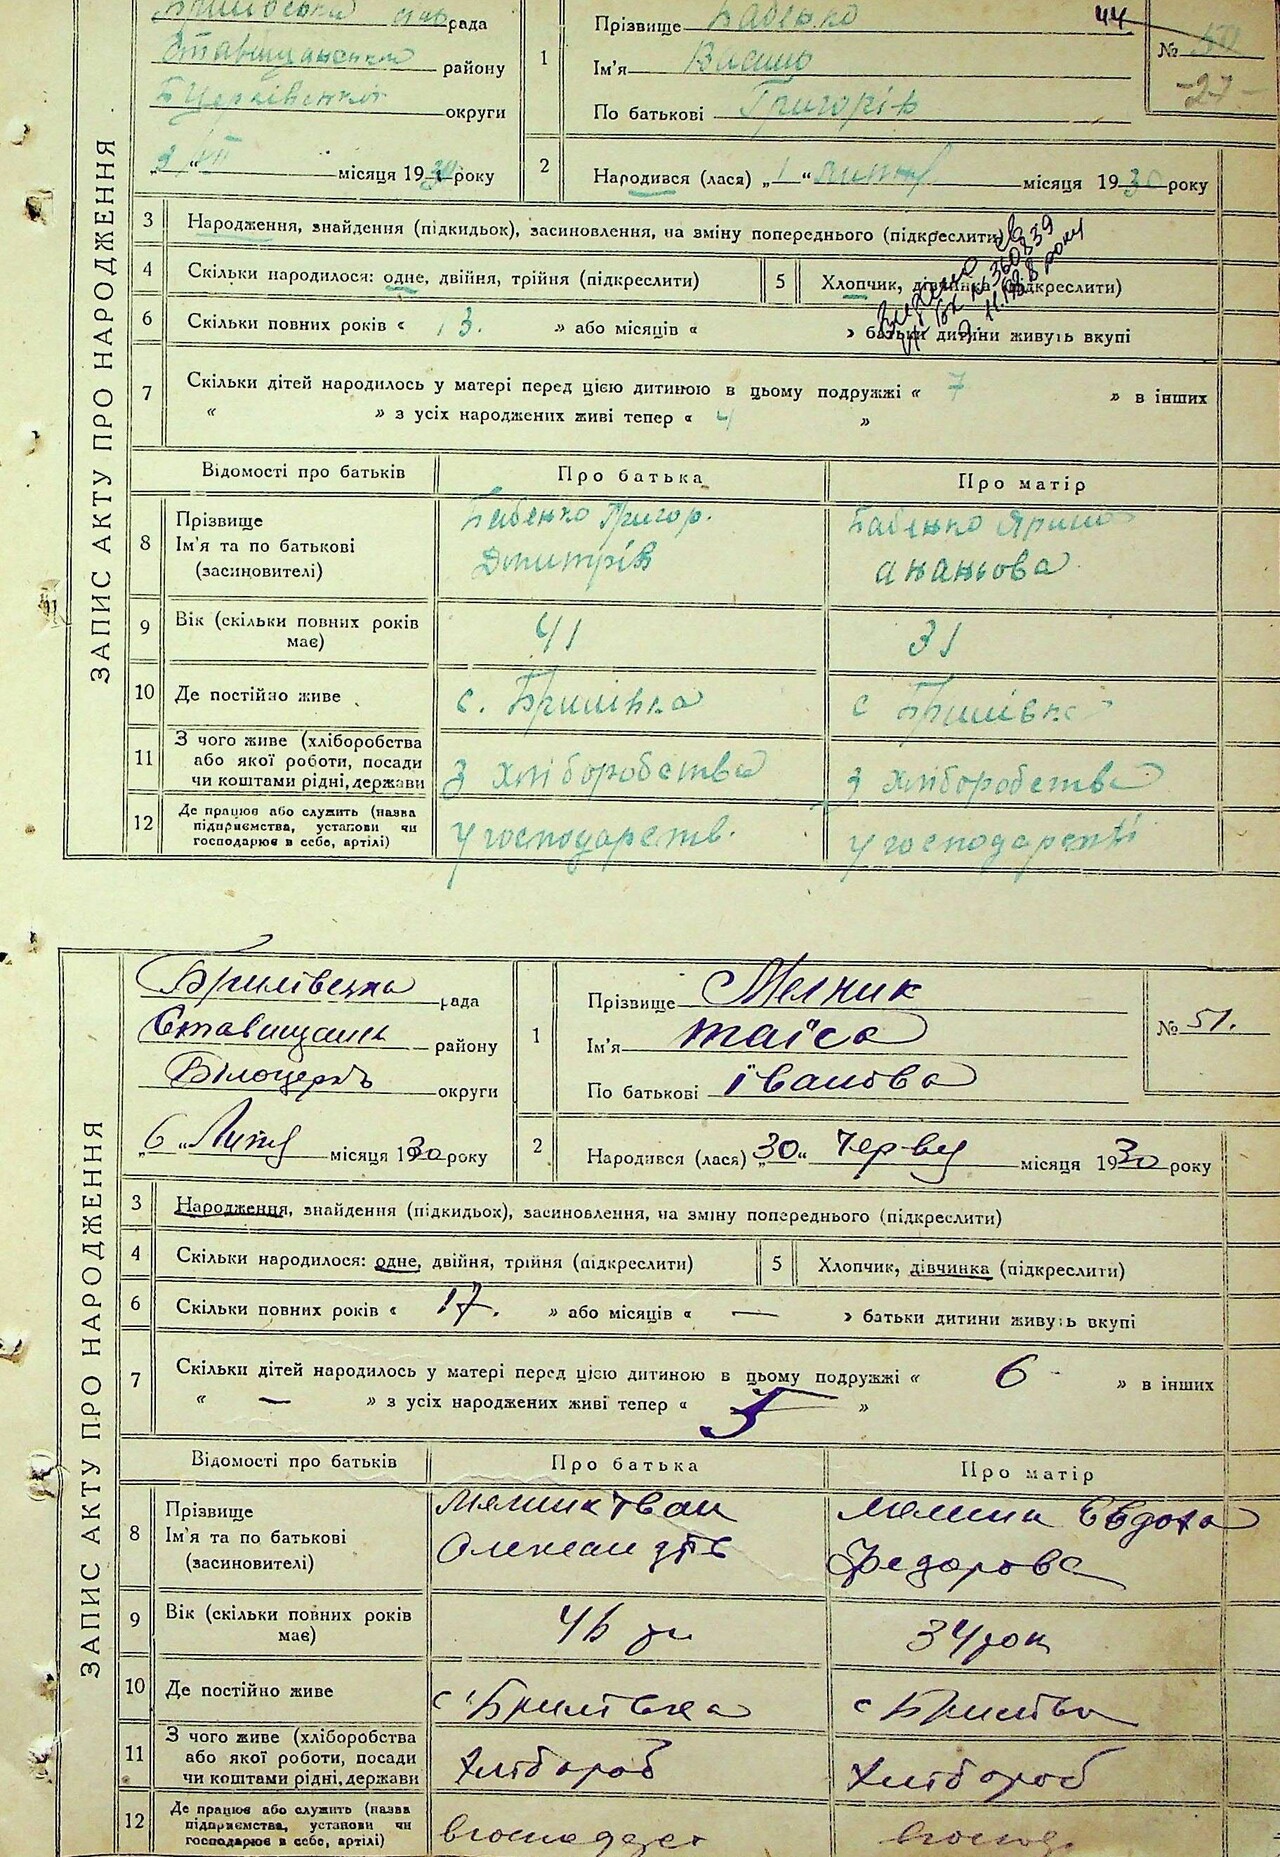 ЗАПИС АКТУ ПРО НАРОДЖЕННЯ
рада
району
округи
„9“ VII місяця 1930 року
1
Прізвище Бабенко
Ім'я Василь
По батькові Григорів
44
№ 50
-27-
2
Народився (лася) „1“ липня місяця 1930 року
3 Народження, знайдення (підкидьок), засиновлення, на зміну попереднього (підкреслити)
4 Скільки народилося: одне, двійня, трійня (підкреслити)
5 Хлопчик, дівчинка (підкреслити)
№ 360839
року
6 Скільки повних років « 13. » або місяців « » батьки дитини живуть вкупі
7 Скільки дітей народилось у матері перед цією дитиною в цьому подружжі « 7 » в інших
« » з усіх народжених живі тепер « 4 »
Відомості про батьків Про батька Про матір
8 Прізвище Ім'я та по батькові (засиновителі)
Бабенко Григор. Дмитрів
Бабенко Ярина Ананьова
9 Вік (скільки повних років має) 41 31
10 Де постійно живе с. Бршівка с Бршівка
11 З чого живе (хліборобства або якої роботи, посади чи коштами рідні, держави
З хліборобства З хліборобства
12 Де працює або служить (назва підприємства, установи чи господарює в себе, артілі)
У господарств. У господарстві
ЗАПИС АКТУ ПРО НАРОДЖЕННЯ
рада
району
округи
„6“ Липня місяця 1930 року
1
Прізвище Мелник
Ім'я Таїса
По батькові Іванова
№ 51.
2
Народився (лася) „30“ Червня місяця 1930 року
3 Народження, знайдення (підкидьок), засиновлення, на зміну попереднього (підкреслити)
4 Скільки народилося: одне, двійня, трійня (підкреслити)
5 Хлопчик, дівчинка (підкреслити)
6 Скільки повних років « 17. » або місяців « — » батьки дитини живуть вкупі
7 Скільки дітей народилось у матері перед цією дитиною в цьому подружжі « 6 - » в інших
« — » з усіх народжених живі тепер « 5 »
Відомості про батьків Про батька Про матір
8 Прізвище Ім'я та по батькові (засиновителі)
Мелник Іван Олександрів
Мелник Евдоха Федорова
9 Вік (скільки повних років має) 46 34 рок
10 Де постійно живе
11 З чого живе (хліборобства або якої роботи, посади чи коштами рідні, держави
Хлібороб Хлібороб
12 Де працює або служить (назва підприємства, установи чи господарює в себе, артілі)